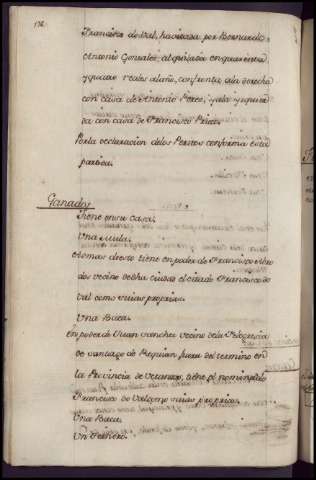 136.
Francisco do Val, havitada por Bernardo
Antonio Gonzalez, alquilada en quarenta
y quatro reales al año, confronta a la derecha
con casa de Antonio Perez, y a la yzquier
da con casa de Francisco Prieto.
Por la declaracion de los Peritos conforma esta
partida.
Ganados
Tiene en su casa.
Una Mula.
Ademas de esto tiene en poder de Francisco
dos vecino de dha ciudad el citado Francisco do
Val como suias proprias.
Una Baca.
En poder de Juan Sanchez vecino de la Feligresia
de Santiago de Requian fuera del termino en
la Provincia de Vetanzos, tiene el nominado
Francisco do Val como suias proprias.
Una Baca.
Un Ternero.